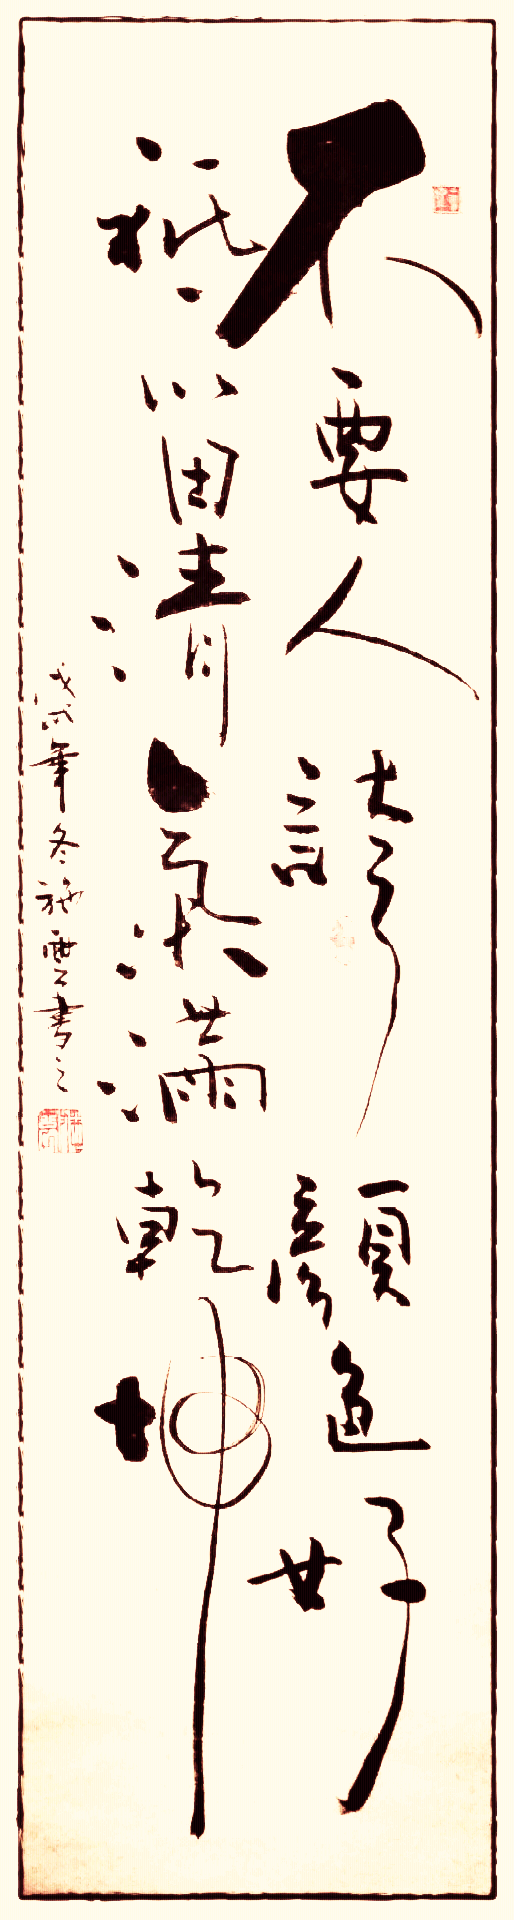 不要人誇顏色好
祗留清氣滿乾坤
戊戌年冬施雲書之